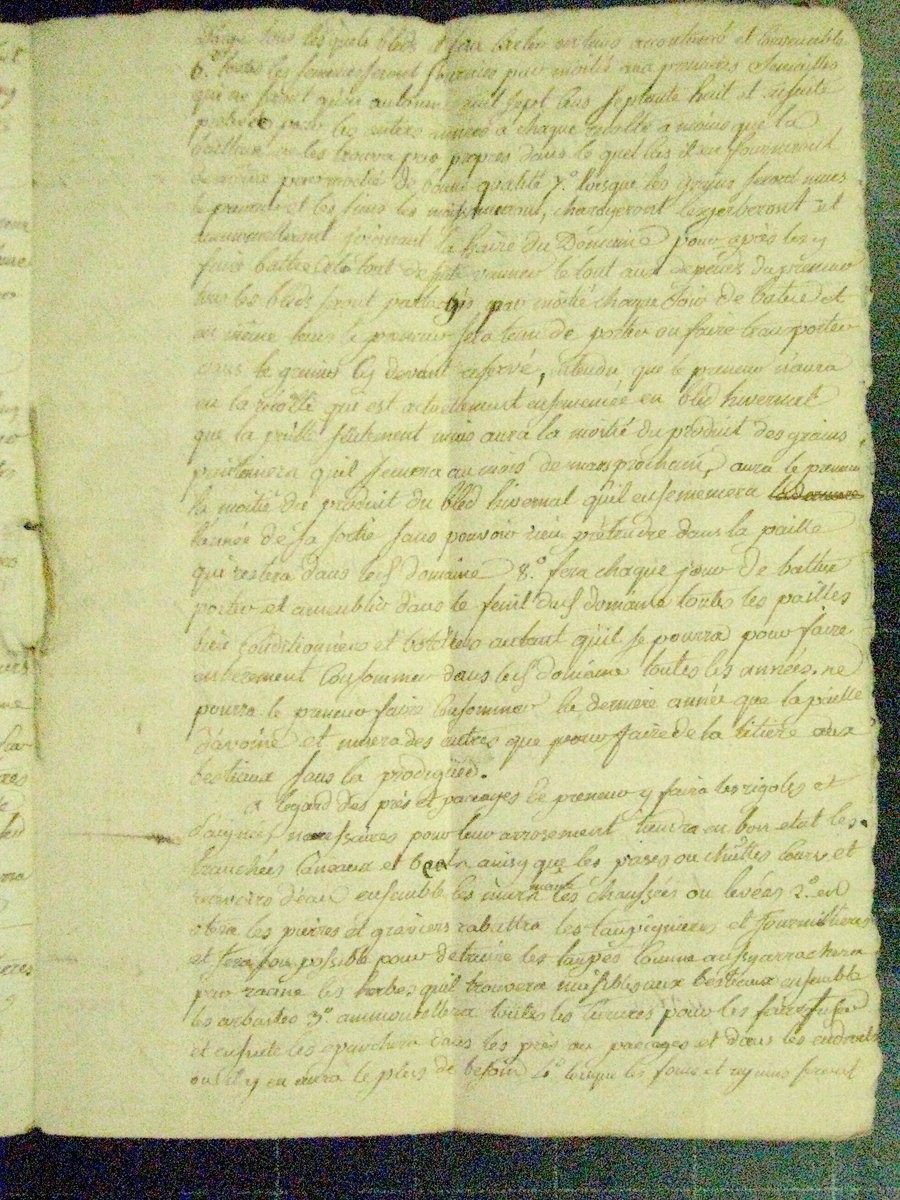 tous les quels bleds
6.º toutes les semences seront fournies par moitié aux premieres semailles
qui se feront qu'en automne mil sept cens septante huit et ensuite
pour les autres années a chaque recolte a moins que la
bailleur ne les trouva pas propres dans le quel cas il en fourniront
par moitié de bonne qualité 7.º lorsque les grains seront murs
le preneur et les siens les moissonneront, charoyeront et
joignant la haire du Domaine pour après les y
faire battre le tout de suite vanner le tout aux depends du preneur
tous les bleds seront partagés par moitié chaque soir de batue et
en même tems le preneur sera tenu de porter ou faire transporter
dans le grenier cy devant reservé, entendu que le preneur n'aura
en la moitié qui est actuellement ensemencée en bled hivernal
que la paille seulement mais aura la moitié du produit des grains
qu'il semera au mois de mars prochain, aura le preneur
la moitié du produit du bled hivernal qu'il ensemencera la derniere
l'année de sa sortie sans pouvoir rien prétendre dans la paille
qui restera dans led. domaine 8.º sera chaque jour de battre
porter et ameublir dans le fenil dud. domaine toutes les pailles
bien conditionnées et autant qu'il se pourra pour faire
entierement consommer dans led. domaine toutes les années. ne
pourra le preneur faire consommer la derniere année que la paille
d'avoine et n'usera des autres que pour faire de la litiere aux
bestiaux sans la prodiguer.
a legard des prés et pacages le preneur y faira les rigoles et
necessaires pour leur arrosement tiendra en bon etat les
tranchées canaux et ainsy que les prises ou chuttes cours et
d'eau ensemble les murs les chaussées ou levées 2.º en
otera les pierres et graviers rabattra les taupignieres et fourmillieres
et fera son possible pour detruire les taupes comme aussy arrachera
par racine les herbes qu'il trouvera nuisibles aux bestiaux ensemble
les arbustes 3.º ammoncellera toutes les curures pour les faire fuser
et ensuite les epanchera dans les prés ou pacages et dans les endroits
ou il y en aura le plus de besoin 4.º lorsque les foins et seront